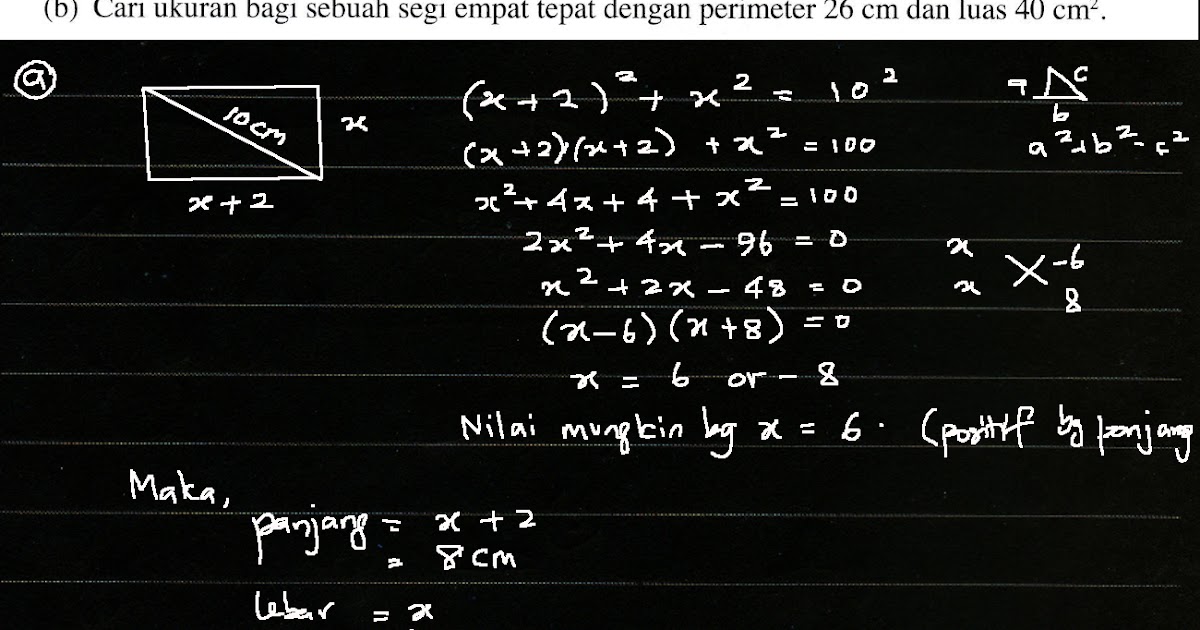 (b) Cari ukuran bagi sebuah segi empat tepat dengan perimeter 26 cm dan luas 40 cm².
(a)
10cm
x
x + 2
(x + 2)² + x² = 10²
(x + 2)(x + 2) + x² = 100
x² + 4x + 4 + x² = 100
2x² + 4x - 96 = 0
x² + 2x - 48 = 0
(x - 6)(x + 8) = 0
x = 6 or - 8
a c
b
a² + b² = c²
x -6
x 8
Nilai mungkin bg x = 6. (positif bg panjang
Maka,
panjang = x + 2
= 8 cm
lebar = x